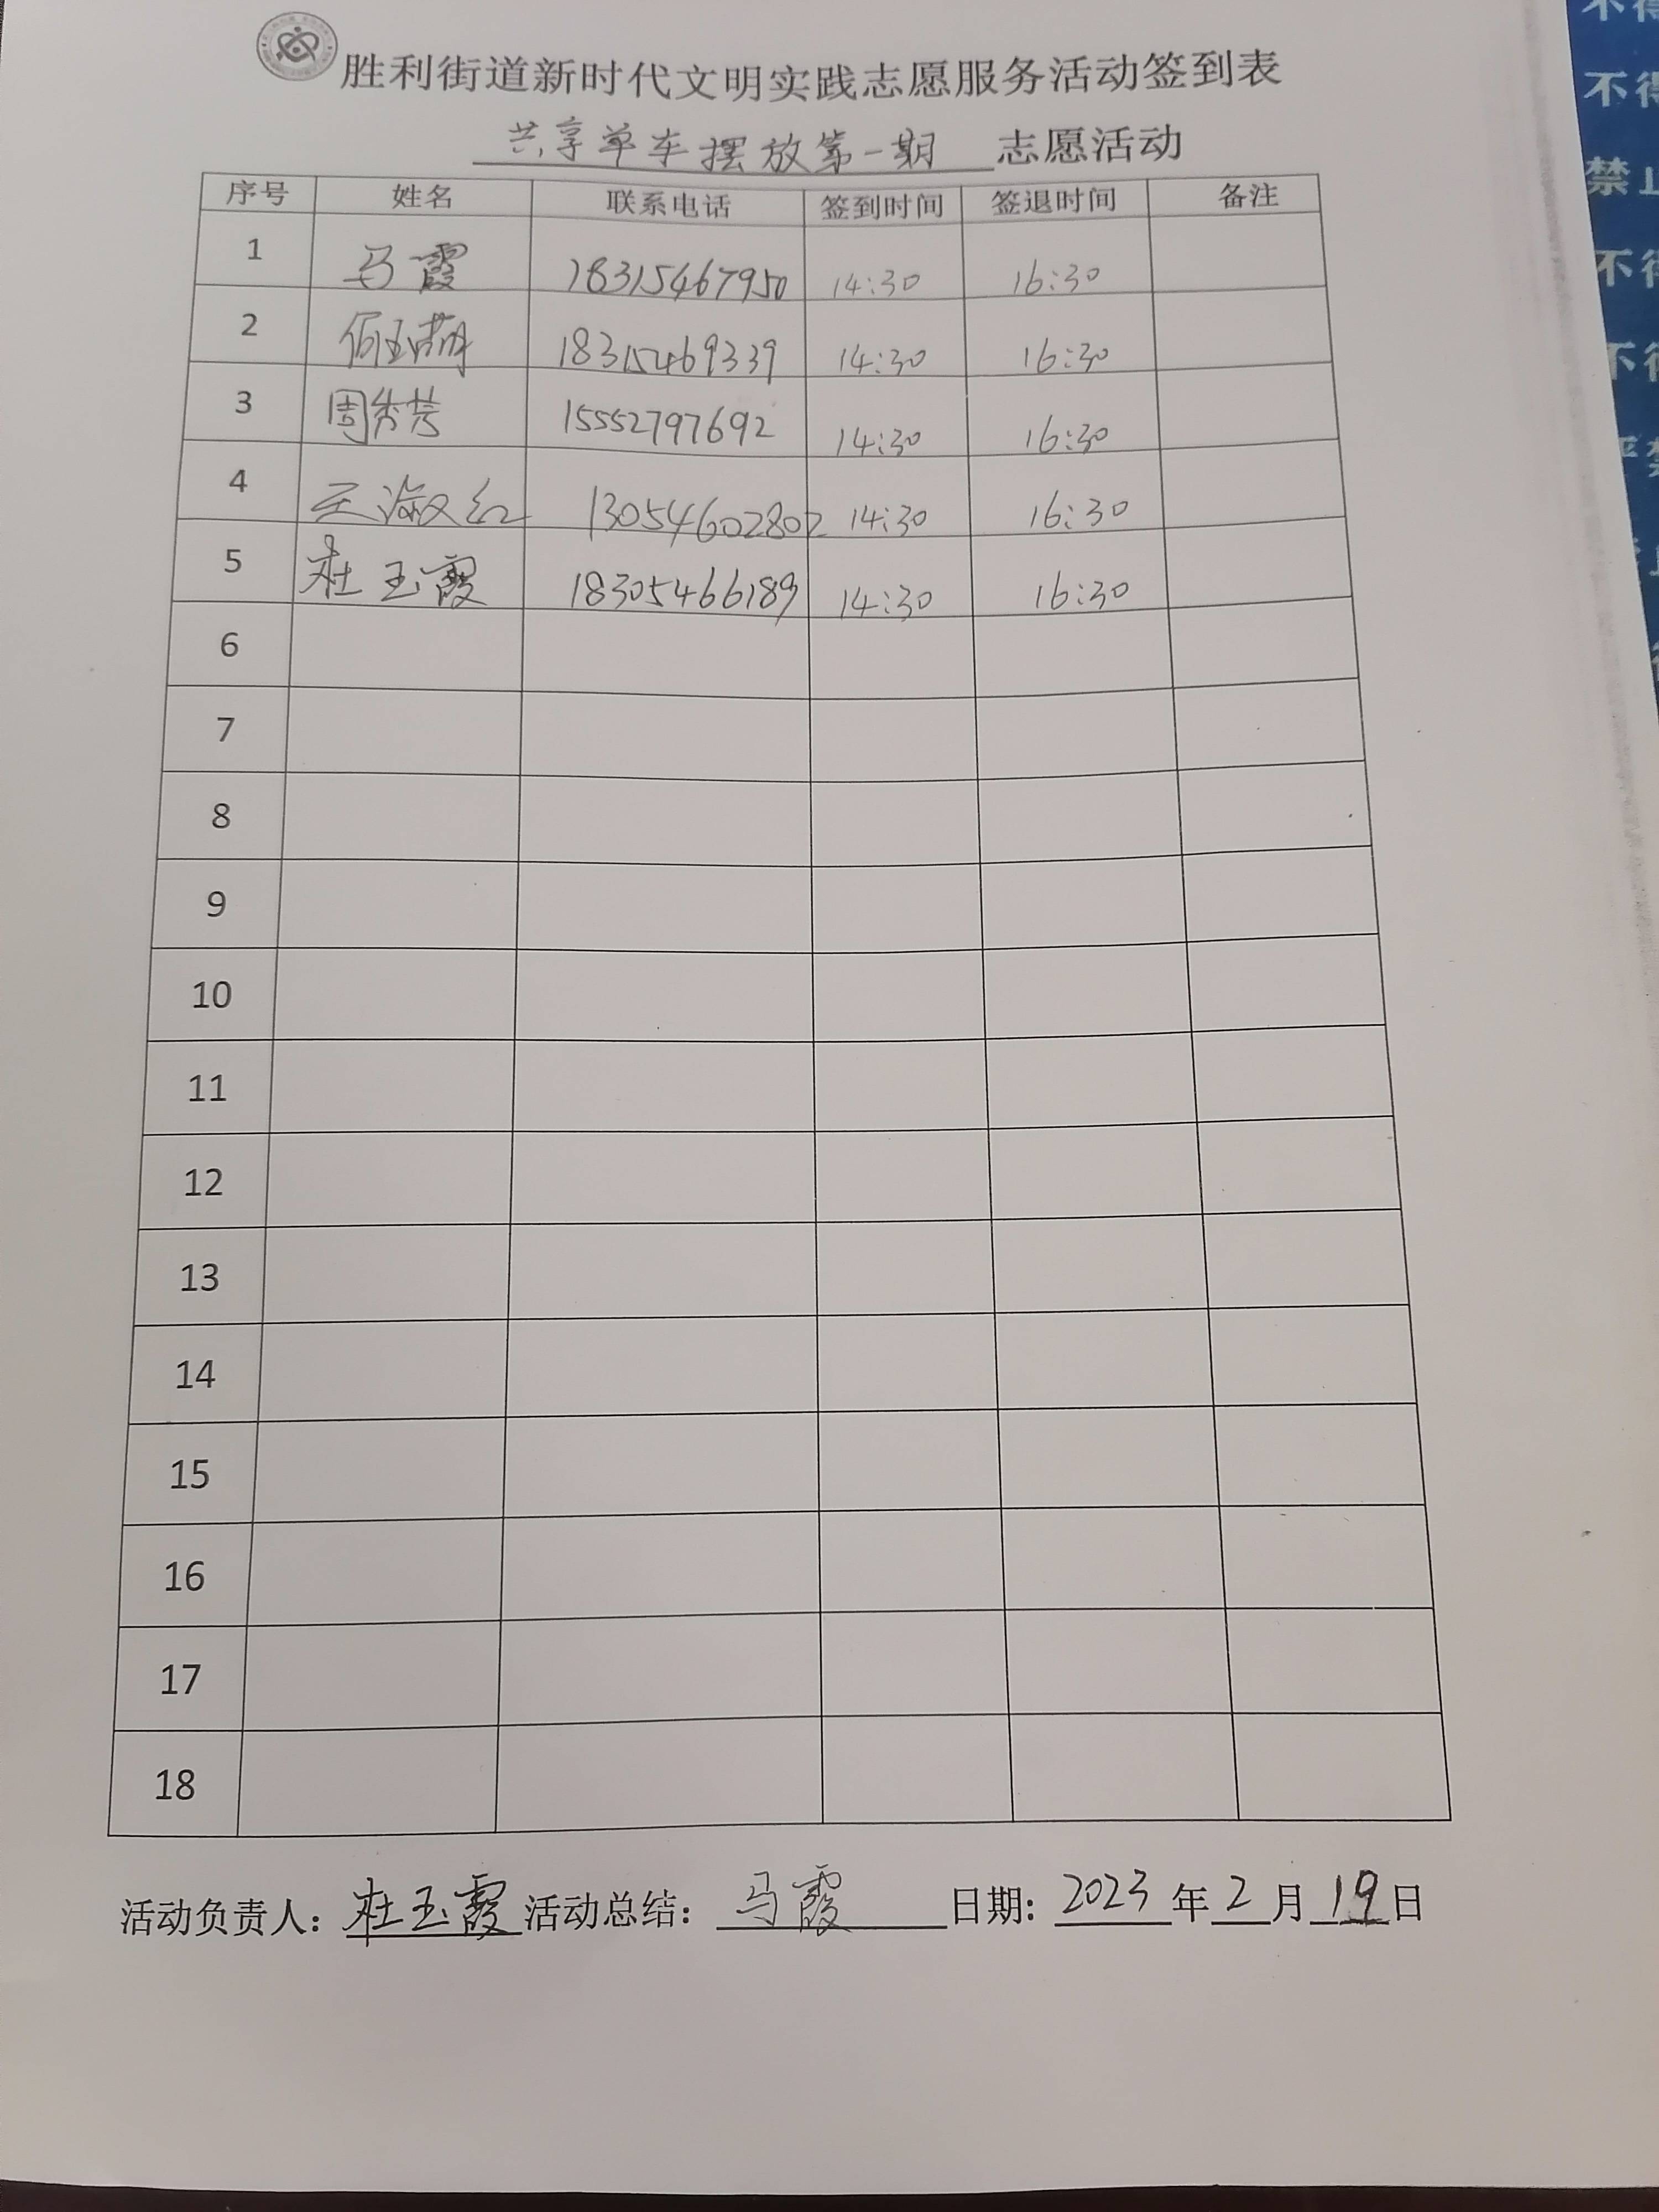 胜利街道新时代文明实践志愿服务活动签到表
共享单车摆放第一期 志愿活动
序号 姓名 联系电话 签到时间 签退时间 备注
1 马霞 18315467950 14:30 16:30
2 18315469339 14:30 16:30
3 周秀芳 15552797692 14:30 16:30
4 王淑红 13054602802 14:30 16:30
5 杜玉霞 18305466189 14:30 16:30
6
7
8
9
10
11
12
13
14
15
16
17
18
活动负责人: 杜玉霞 活动总结: 马霞 日期: 2023 年 2 月 19 日
不得
禁止
不得
不得
严禁